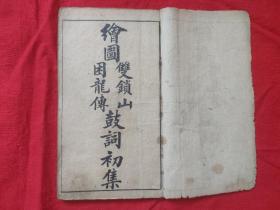 繪圖
雙鎖山
困龍傳
鼓詞初集